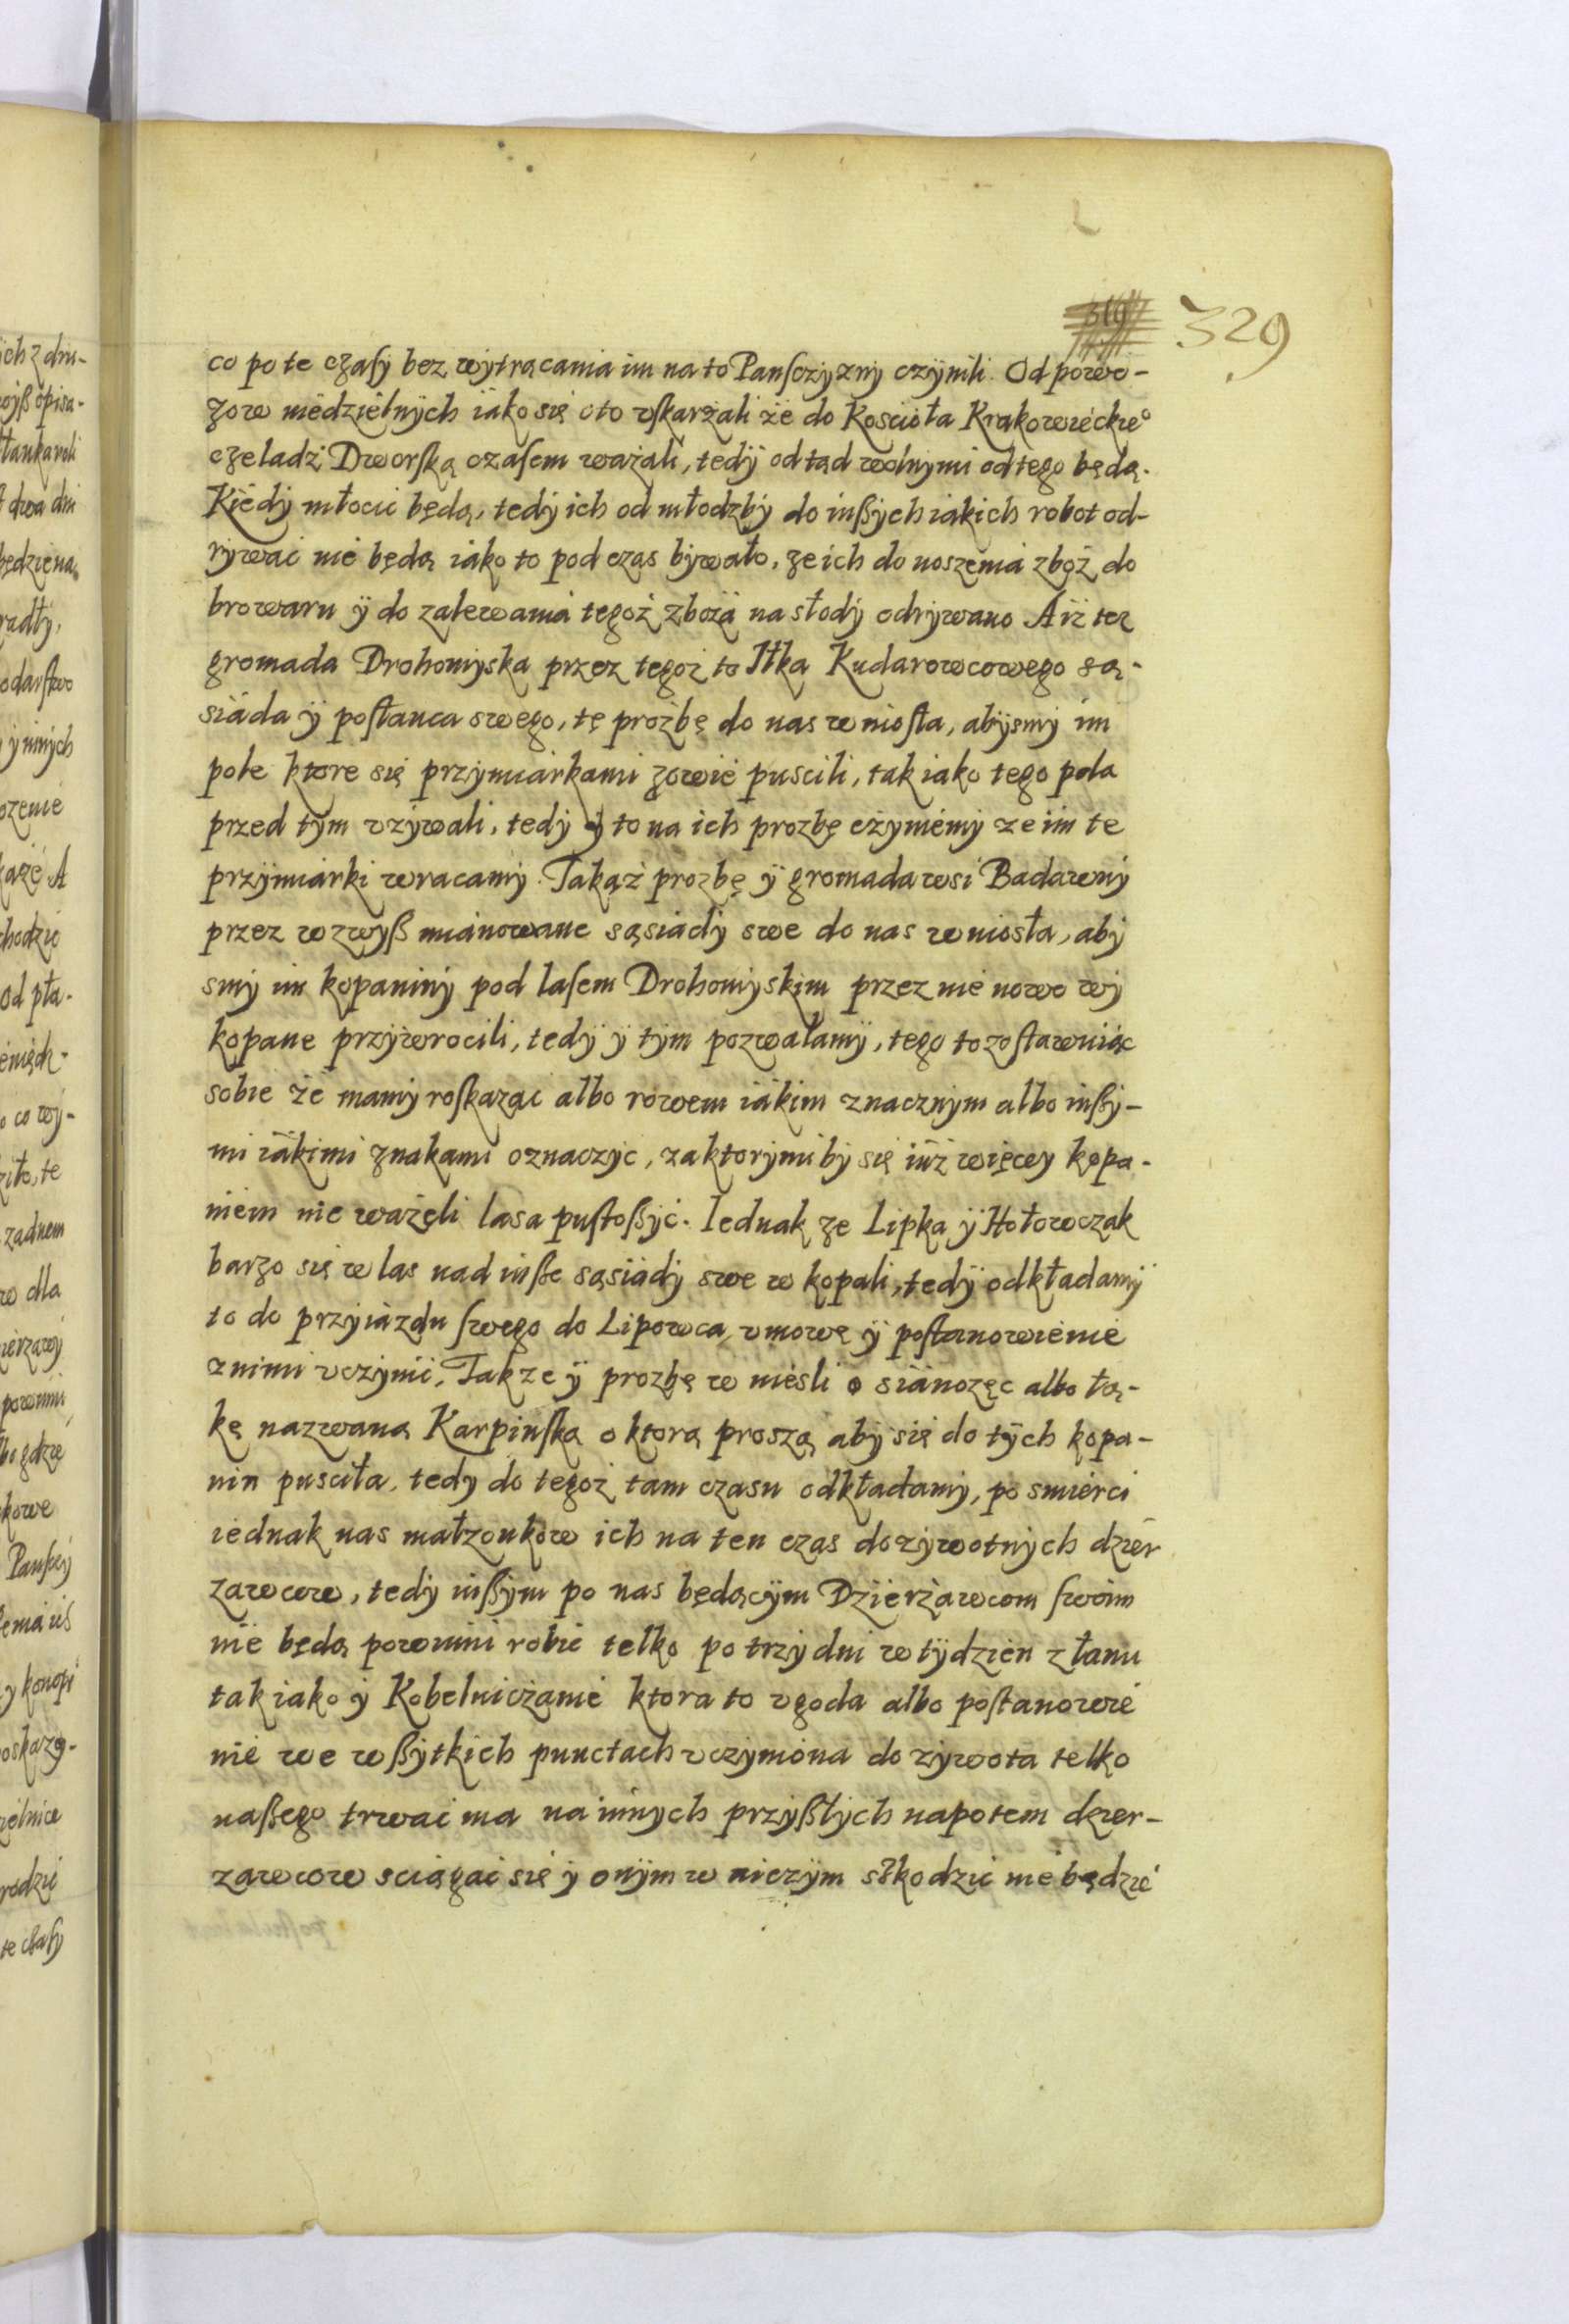 319 329
co po te czaſy bez wytrącania im na to Panſczyzny czynili. Od powo-
zow niedzielnych iako się o to vſkarżali że do Kościoła Krakowieckie°
czeladź Dworſką czaſem ważali, tedy odtąd wolnymi od tego będą.
Kiedy młocić będą, tedy ich od młodzby do inßych iakich robot od-
rywać nie będą iako to pod czas bywało, ze ich do noszenia zboż do
browaru ÿ do zalewania tegoż zboża na słody odrywano A iż tez
gromada Drohomyska przez tegoż to Ilka Kudarowcowego są-
siada ÿ poſłanca swego, tę prożbę do nas wnioſła, abysmy im
pole ktore się przymiarkami zowie puscili, tak iako tego pola
przed tym vzywali, tedy y to na ich prozbę czyniemy ze im te
przymiarki wracamy. Takąż prozbę ÿ gromada wsi Badawny
przez wzwyß mianowane sąsiady swe do nas wniosła, aby
smy im kopaniny pod laſem Drohomyskim przez nie nowo wy
kopane przywrocili, tedy y tym pozwalamy, tego to zoſtawuiąc
sobie że mamy roſkazać albo rowem iakim znacznym albo inßy-
mi iakimi znakami oznaczyć, za ktorymi by się iuż więcey kopa-
niem nie ważęli lasa puſtoßyć. Iednak ze Lipka ÿ Hołowczak
barzo się w las nad inße sąsiady swe w kopali, tedy odkładamy
to do przyiazdu ſwego do Lipowca, vmowę ÿ poſtanowienie
z nimi vczynić, Takze ÿ prozbę w nieśli o sianozęc albo łą-
kę nazwaną Karpinſką o ktorą proszą aby się do tych kopa-
nin puscila, tedy do tegoż tam czasu odkładamy, po smierci
iednak nas małzonkow ich na ten czas dozywotnych dzier
zawcow, tedy inßym po nas będącym Dzierżawcom ſwoim
nie będą powinni robić telko po trzy dni w tydzien z łanu
tak iako y Kobelniczanie ktora to vgoda albo poſtanowie
nie we wßytkich punctach vczyniona do zywota telko
naßego trwać ma na innych przyßłych napotem dzier-
zawcow sciągać się y onym w niczym słkodzić nie będzie